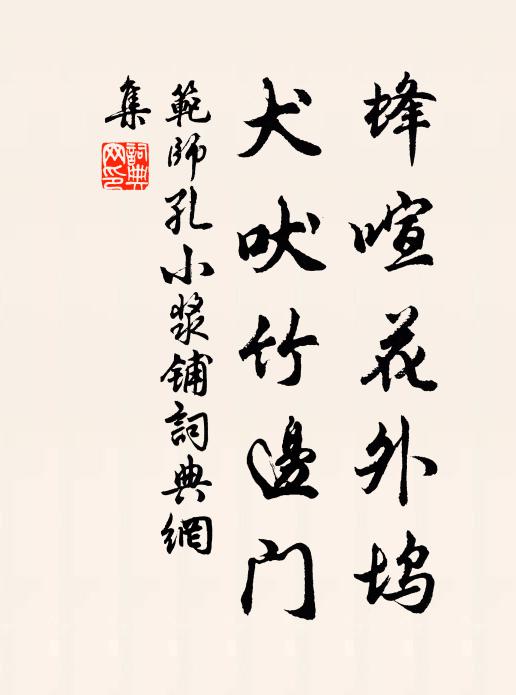 蜂喧花外坞
犬吠竹邊门
範師孔小漿鋪詞典網
集
詞典
网印